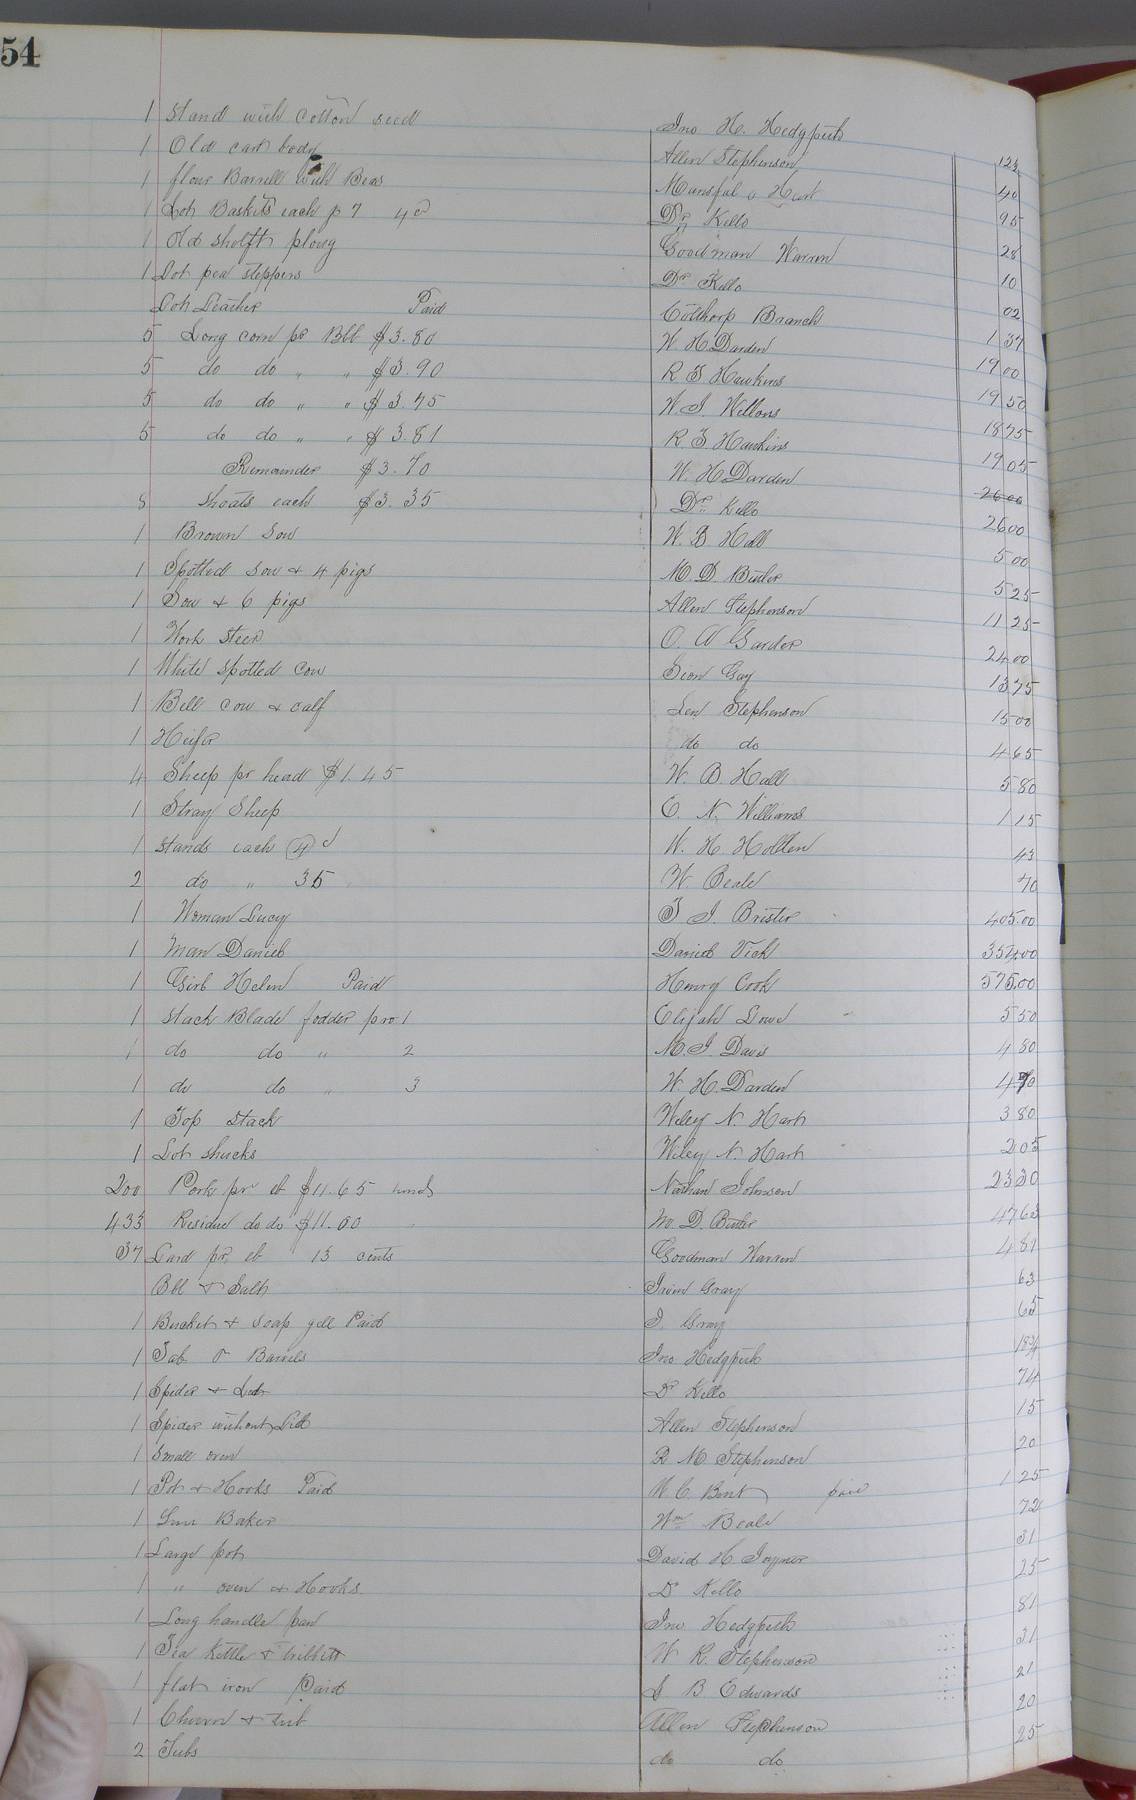 54
1 Stand with cotton seed Jno H. Hedgpeth 12½
1 Old cart body Allen Stephenson 40
1 flour Barrell with Beas 95
1 Lot Baskets each p 7 4 Dr Kello 28
1 Old shefft plowg Goodman Warren 10
1 Lot pea steppers Dr Kello 02
Lot Leather Paid Cotthorp Branch 1 37
5 Long corn pr Bbl $3.80 W H Darden 19 00
5 do do " " $3.90 R T Hawkins 19 50
5 do do " " $3.75 W. J. Wellons 18 75
5 do do " " $3.81 R T Hawkins 19 05
Remainder $3.70 W. H Darden 26 00
8 shoats each $3.35 Dr Kello 26 00
1 Brown Sow W. B Hall 5 00
1 Spotted Sow & 4 pigs M. D. Butler 5 25
1 Sow & 6 pigs Allen Stephenson 11 25
1 Work Steer 24 00
1 White spotted cow Sion Gay 13 75
1 Bell cow & calf Len Stephenson 15 00
1 Heifer do do 4 65
4 Sheep pr head $1.45 W. B. Hall 5 80
1 Stray Sheep E. N. Williams 1 15
1 stands each W. H. Holden 43
2 do " 35 W. Beale 70
1 Woman Lucy T J. Brister 405.00
1 Man Daniel Daniel Vick 354.00
1 Girl Helen Paid Henry Cook 575.00
1 Stack Blade fodder pr no 1 Elijah Lowe 5 50
1 do do " 2 M. J. Davis 4 80
1 do do " 3 W. H. Darden 4 70
1 Top Stack Wiley N. Hart 3 80
1 Lot shucks Wiley N. Hart 2 05
200 Pork pr ct $11.65 Nathan Johnson 23 30
433 Residue do do $11.00 M. D. Butler 47 63
37 Lard pr ct 13 cents Goodman Warren 4 81
Bbl & Salt Irvin Gray 63
1 Bucket & soap gill Paid J. Gray 65
1 Tab & Barrels Jno Hedgpeth 18¾
1 Spider & Led Dr Kello 74
1 Spider without Lid Allen Stephenson 15
1 Small oven R M Stephenson 20
1 Pot & Hooks Paid paid 1 25
1 Baker Wm Beale 72
1 Large pot David H Joyner 31
1 " oven & Hooks Dr Kello 25
1 Long handle pan Jno Hedgpeth 81
1 Tea Kettle & tribbett W R. Stephenson 31
1 flat iron Paid J B Edwards 21
1 Churn & Allen Stephenson 20
2 Tubs do do 25